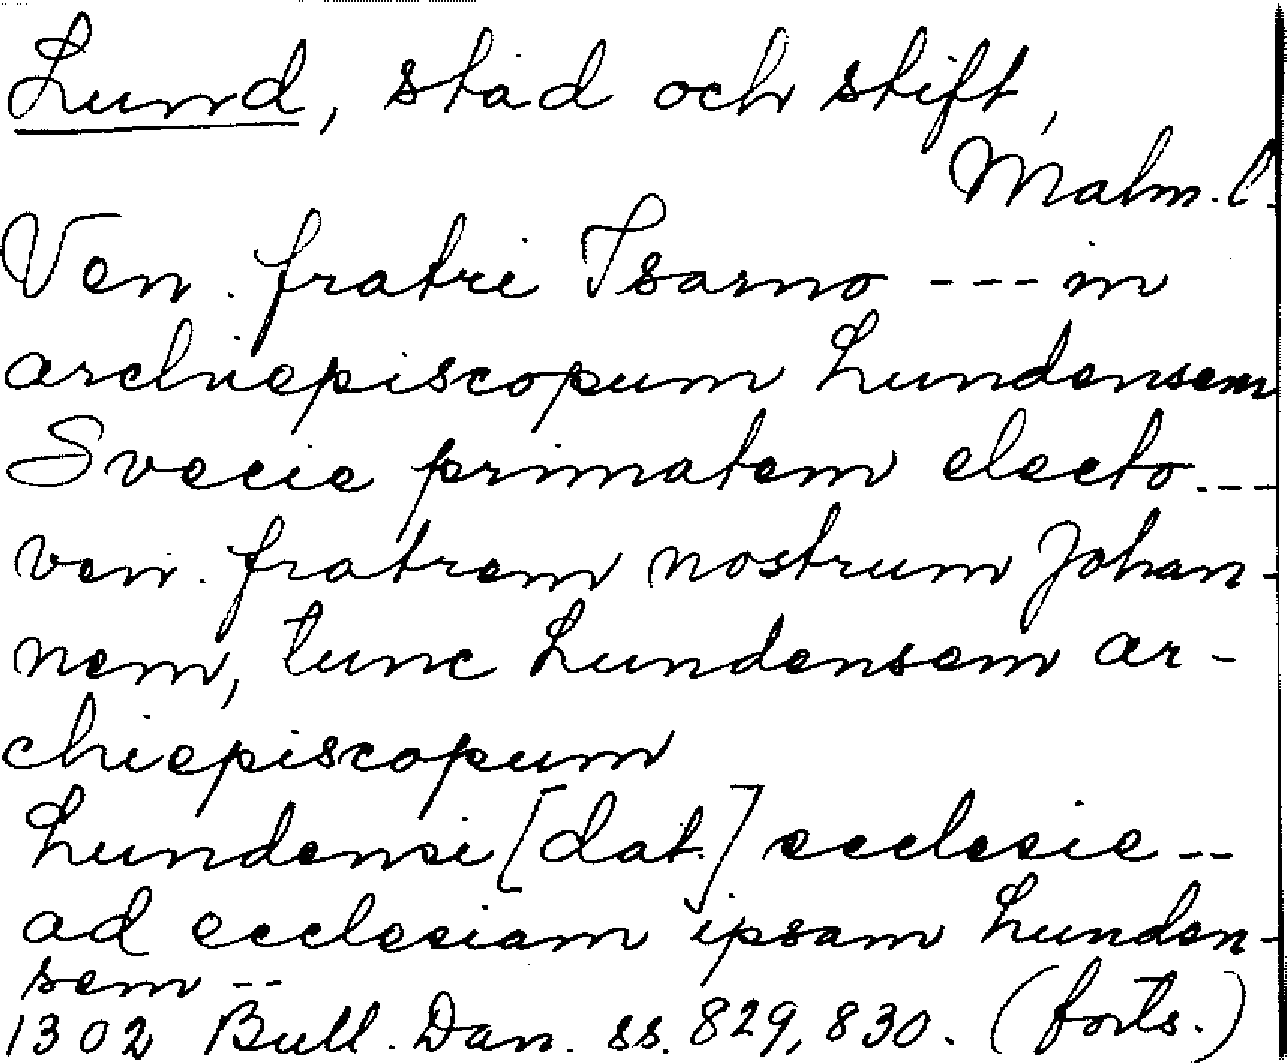 Lund, stad och stift,
Malm. l.
Ven. fratri Isarno --- in
archiepiscopum Lundensem
Svecie primatem electo ---
ven. fratrem nostrum Johan-
nem, tunc Lundensem ar-
chiepiscopum
Lundensi [dat.] ecclesie --
ad ecclesiam ipsam Lunden-
sem --
1302 Bull. Dan. ss. 829, 830. (forts.)